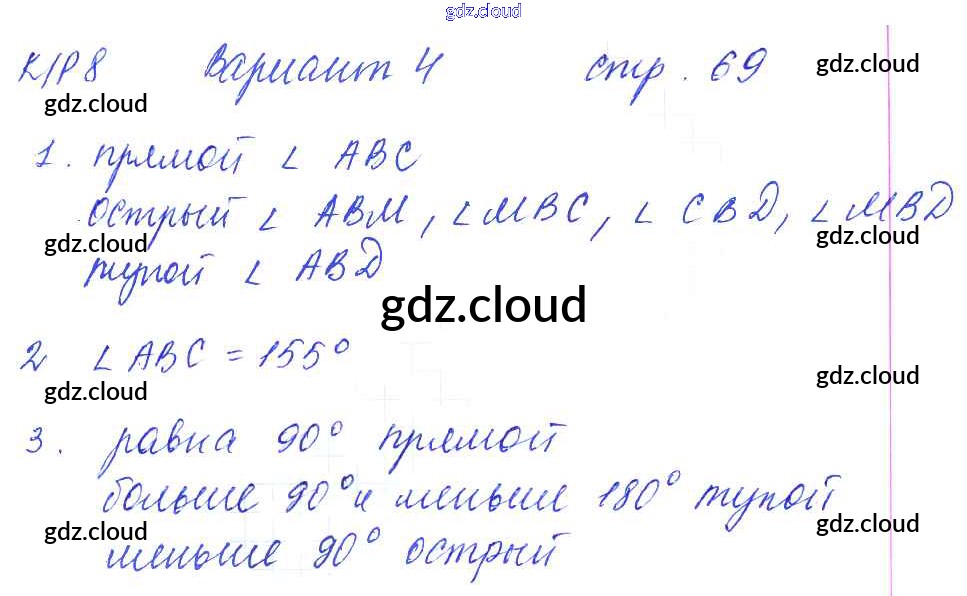 gdz.cloud
К/Р 8 Вариант 4 стр. 69
gdz.cloud gdz.cloud
1. прямой ∠ ABC
острый ∠ ABM, ∠ MBC, ∠ CBD, ∠ MBD
gdz.cloud gdz.cloud
тупой ∠ ABD
gdz.cloud
2 ∠ ABC = 155°
gdz.cloud gdz.cloud
3. равна 90° прямой
больше 90° и меньше 180° тупой
gdz.cloud gdz.cloud
меньше 90° острый